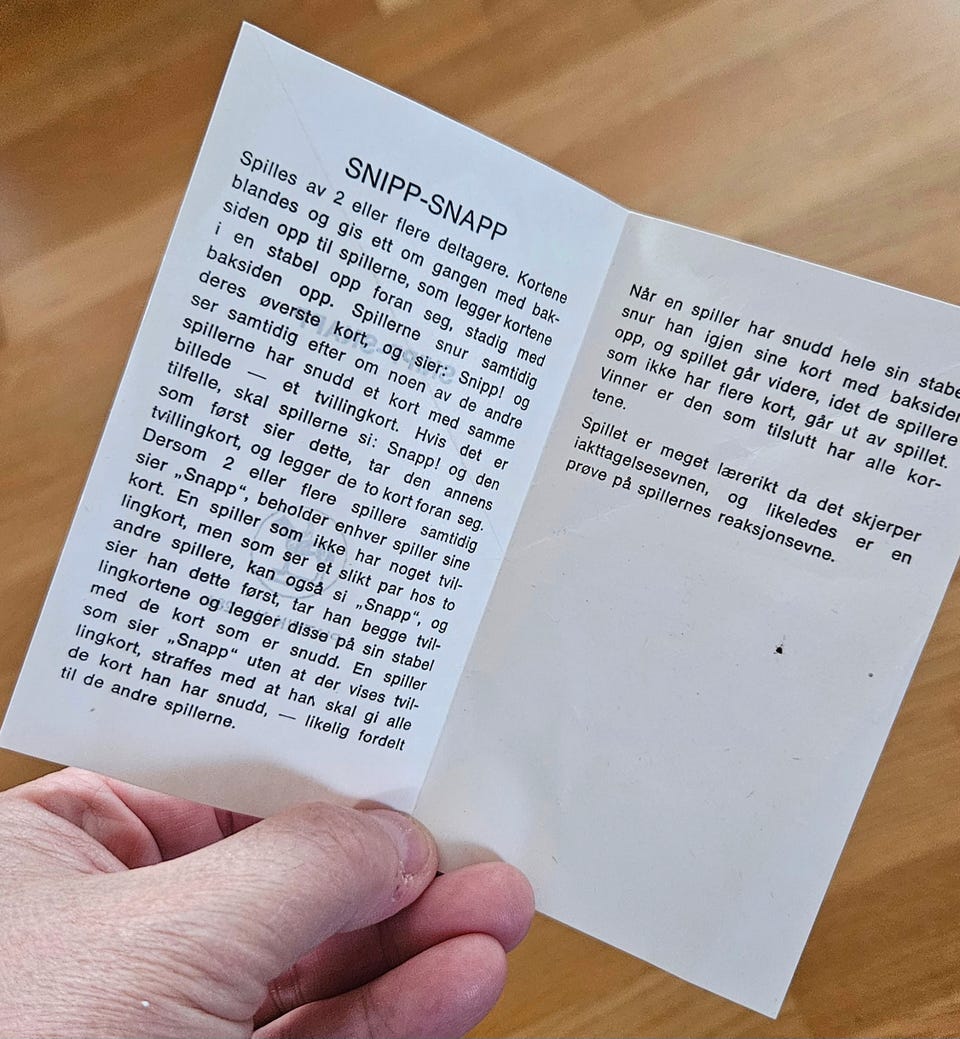 SNIPP-SNAPP
Spilles av 2 eller flere deltagere. Kortene
blandes og gis ett om gangen med bak-
siden opp til spillerne, som legger kortene
i en stabel opp foran seg, stadig med
baksiden opp. Spillerne snur samtidig
deres øverste kort, og sier: Snipp! og
ser samtidig efter om noen av de andre
spillerne har snudd et kort med samme
billede — et tvillingkort. Hvis det er
tilfelle, skal spillerne si: Snapp! og den
som først sier dette, tar den annens
tvillingkort, og legger de to kort foran seg.
Dersom 2 eller flere spillere samtidig
sier „Snapp“, beholder enhver spiller sine
kort. En spiller som ikke har noget tvil-
lingkort, men som ser et slikt par hos to
andre spillere, kan også si „Snapp“, og
sier han dette først, tar han begge tvil-
lingkortene og legger disse på sin stabel
med de kort som er snudd. En spiller
som sier „Snapp“ uten at der vises tvil-
lingkort, straffes med at han skal gi alle
de kort han har snudd, — likelig fordelt
til de andre spillerne.
Når en spiller har snudd hele sin stabe
snur han igjen sine kort med baksiden
opp, og spillet går videre, idet de spillere
som ikke har flere kort, går ut av spillet.
Vinner er den som tilslutt har alle kor-
tene.
Spillet er meget lærerikt da det skjerper
iakttagelsesevnen, og likeledes er en
prøve på spillernes reaksjonsevne.